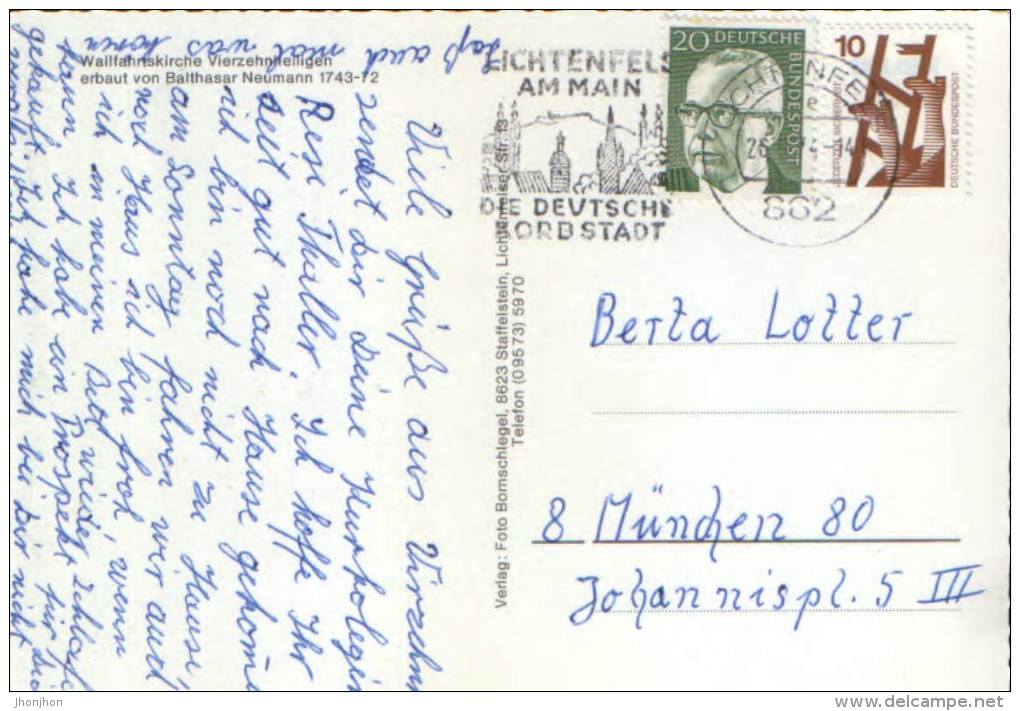 Wallfahrtskirche Vierzehnheiligen
erbaut von Balthasar Neumann 1743-72
LICHTENFELS
AM MAIN
DIE DEUTSCHE
KORBSTADT
20 DEUTSCHE
BUNDESPOST
10
JEDERZEIT SICHERHEIT
DEUTSCHE BUNDESPOST
862
Viele Grüße aus Vierzehn
sendet Dir Deine Kurkolegin
Resi Thaller. Ich hoffe Ihr
seit gut nach Hause gekom̄e
ich bin noch nicht zu Hause
am Sonntag fahren wir auch
nach Haus ich bin froh, wenn
ich in meinen Bett wieder schlafe
kann. Ich habe ein Prospekt für Dich
gekauft. Ich habe mich bei Dir nicht
Laß auch mal was hören
Verlag: Foto Bornschlegel, 8623 Staffelstein, Lichtenfelser Str. 13
Telefon (09573) 5970
Berta Lotter
8 München 80
Johannispl. 5 III
jhonjhon
www.delcampe.net